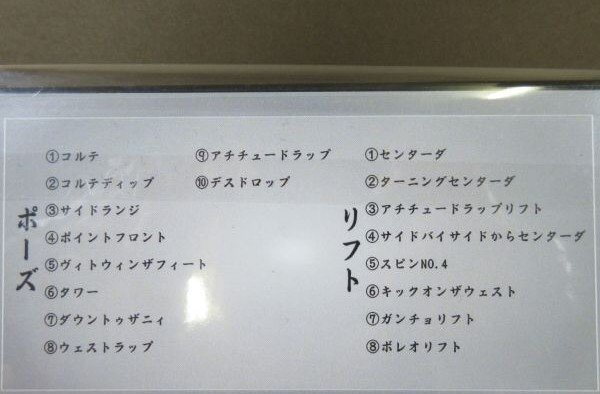 ポーズ
①コルテ
②コルテディップ
③サイドランジ
④ポイントフロント
⑤ヴィトウィンザフィート
⑥タワー
⑦ダウントゥザニィ
⑧ウェストラップ
⑨アチチュードラップ
⑩デスドロップ
リフト
①センターダ
②ターニングセンターダ
③アチチュードラップリフト
④サイドバイサイドからセンターダ
⑤スピンNO.4
⑥キックオンザウェスト
⑦ガンチョリフト
⑧ボレオリフト